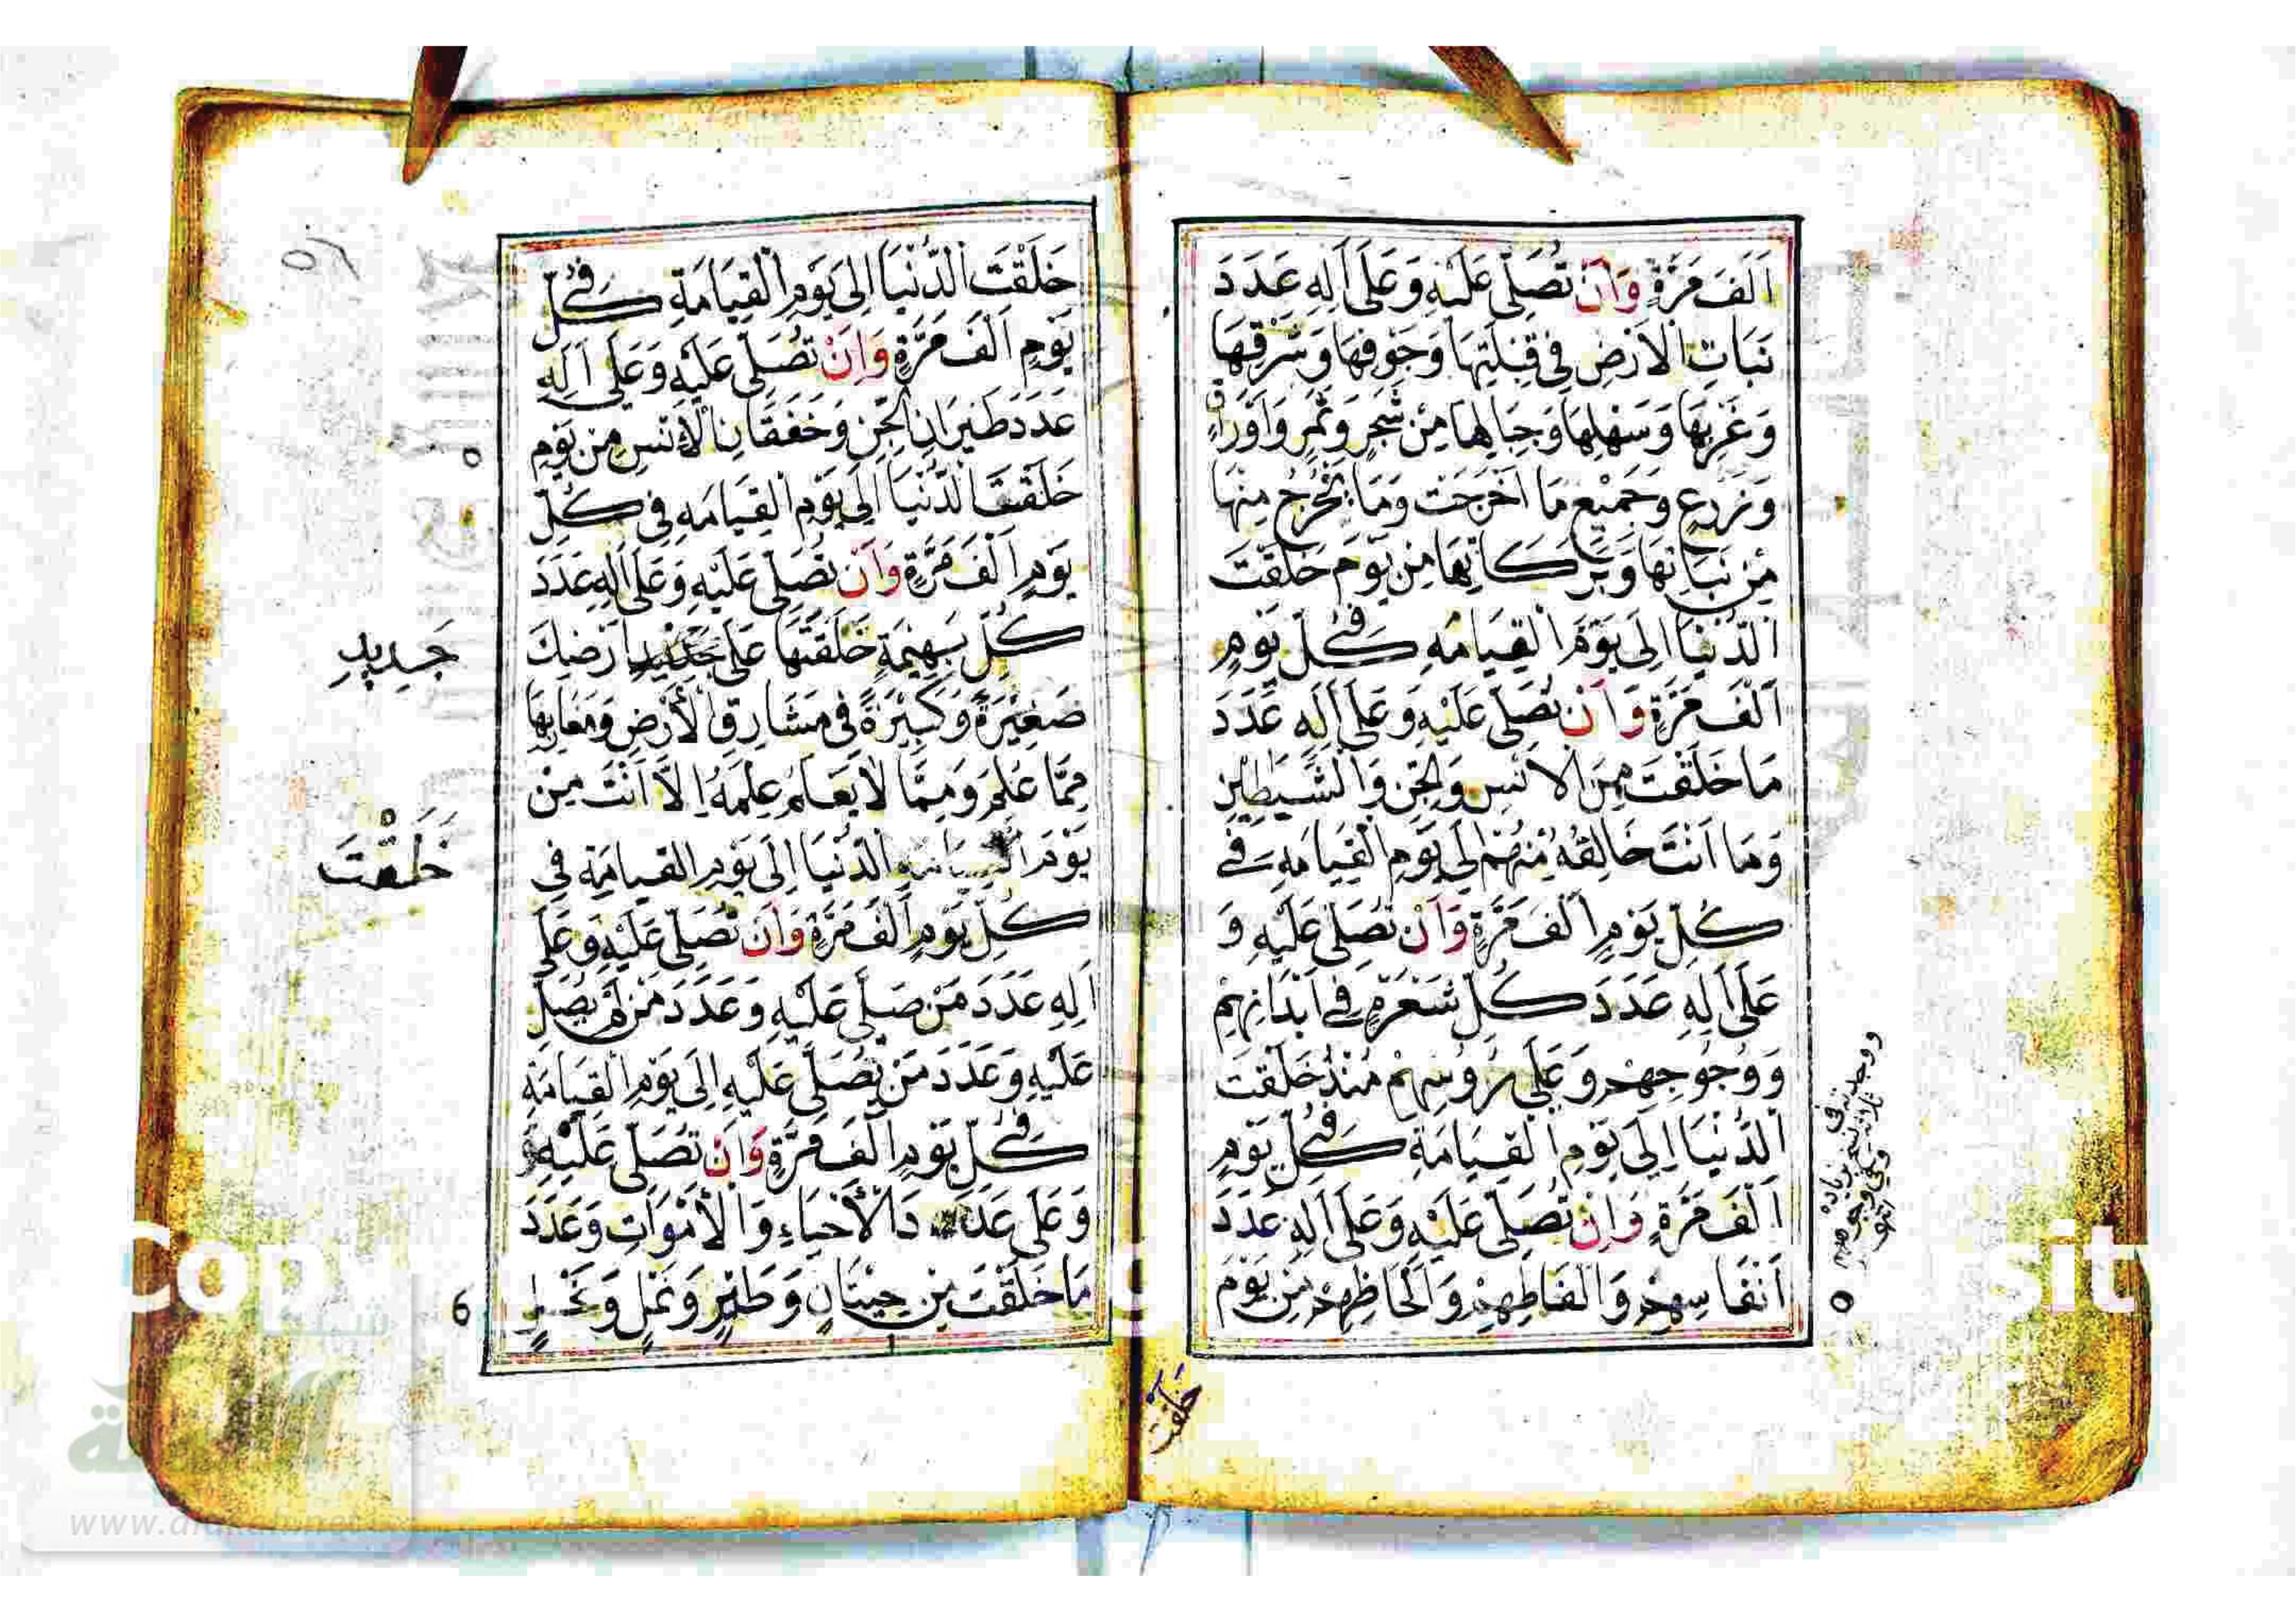 اَلَفَ مَرَّةٍ وَاَنْ تُصَلِّيَ عَلَيْهِ وَعَلَى اَلِهِ عَدَدَ
نَبَاتِ الْاَرْضِ فِي قِبْلَتِهَا وَجَوْفِهَا وَشَرْقِهَا
وَغَرْبِهَا وَسَهْلِهَا وَجِبَالِهَا مِنْ شَجَرٍ وَثَمَرٍ وَاَوْرَاقٍ
وَزَرْعٍ وَجَمِيْعِ مَا اَخْرَجَتْ وَمَا يَخْرُجُ مِنْهَا
مِنْ نَبَاتِهَا وَبَرَكَاتِهَا مِنْ يَوْمَ خَلَقْتَ
الدُّنْيَا اِلَى يَوْمِ الْقِيَامَةِ فِي كُلِّ يَوْمٍ
اَلْفَ مَرَّةٍ وَاَنْ تُصَلِّيَ عَلَيْهِ وَعَلَى اَلِهِ عَدَدَ
مَا خَلَقْتَ مِنَ الْاِنْسِ وَالْجِنِّ وَالشَّيٰطِيْنِ
وَمَا اَنْتَ خَالِقُهُ مِنْهُمْ اِلَى يَوْمِ الْقِيَامَةِ فِي
كُلِّ يَوْمٍ اَلْفَ مَرَّةٍ وَاَنْ تُصَلِّيَ عَلَيْهِ وَ
عَلَى اَلِهِ عَدَدَ كُلِّ شَعْرَةٍ فِي اَبْدَانِهِمْ
وَوُجُوْهِهِمْ وَعَلَى رُءُوْسِهِمْ مُنْذُ خَلَقْتَ
الدُّنْيَا اِلَى يَوْمِ الْقِيَامَةِ فِي كُلِّ يَوْمٍ
اَلْفَ مَرَّةٍ وَاَنْ تُصَلِّيَ عَلَيْهِ وَعَلَى اَلِهِ عَدَدَ
اَنْفَاسِهِمْ وَاَلْفَاظِهِمْ وَاَلْحَاظِهِمْ مِنْ يَوْمَ
خلقت
خَلَقْتَ الدُّنْيَا اِلَى يَوْمِ الْقِيَامَةِ فِي كُلِّ
يَوْمٍ اَلْفَ مَرَّةٍ وَاَنْ تُصَلِّيَ عَلَيْهِ وَعَلَى اَلِهِ
عَدَدَ طَيَرَانِ الْجِنِّ وَخَفَقَانِ الْاِنْسِ مِنْ يَوْمِ
خَلَقْتَ الدُّنْيَا اِلَى يَوْمِ الْقِيَامَةِ فِي كُلِّ
يَوْمٍ اَلْفَ مَرَّةٍ وَاَنْ تُصَلِّيَ عَلَيْهِ وَعَلَى اَلِهِ عَدَدَ
كُلِّ بَهِيْمَةٍ خَلَقْتَهَا عَلَى جَدِيْدِ اَرْضِكَ
جَدِيدِ
صَغِيْرَةً وَكَبِيْرَةً فِي مَشَارِقِ الْاَرْضِ وَمَغَارِبِهَا
مِمَّا عُلِمَ وَمِمَّا لَا يَعْلَمُ عِلْمَهُ اِلَّا اَنْتَ مِنْ
يَوْمَ الدُّنْيَا اِلَى يَوْمِ الْقِيَامَةِ فِي
خَلَقْتَ
كُلِّ يَوْمٍ اَلْفَ مَرَّةٍ وَاَنْ تُصَلِّيَ عَلَيْهِ وَعَلَى
اَلِهِ عَدَدَ مَنْ صَلَّى عَلَيْهِ وَعَدَدَ مَنْ لَمْ يُصَلِّ
عَلَيْهِ وَعَدَدَ مَنْ يُصَلِّي عَلَيْهِ اِلَى يَوْمِ الْقِيَامَةِ
فِي كُلِّ يَوْمٍ اَلْفَ مَرَّةٍ وَاَنْ تُصَلِّيَ عَلَيْهِ
وَعَلَى عَدَدَ الْاَحْيَاءِ وَالْاَمْوَاتِ وَعَدَدَ
مَا خَلَقْتَ مِنْ حِيْتَانٍ وَطَيْرٍ وَنَمْلٍ وَنَحْلٍ
6
www.alukah.net